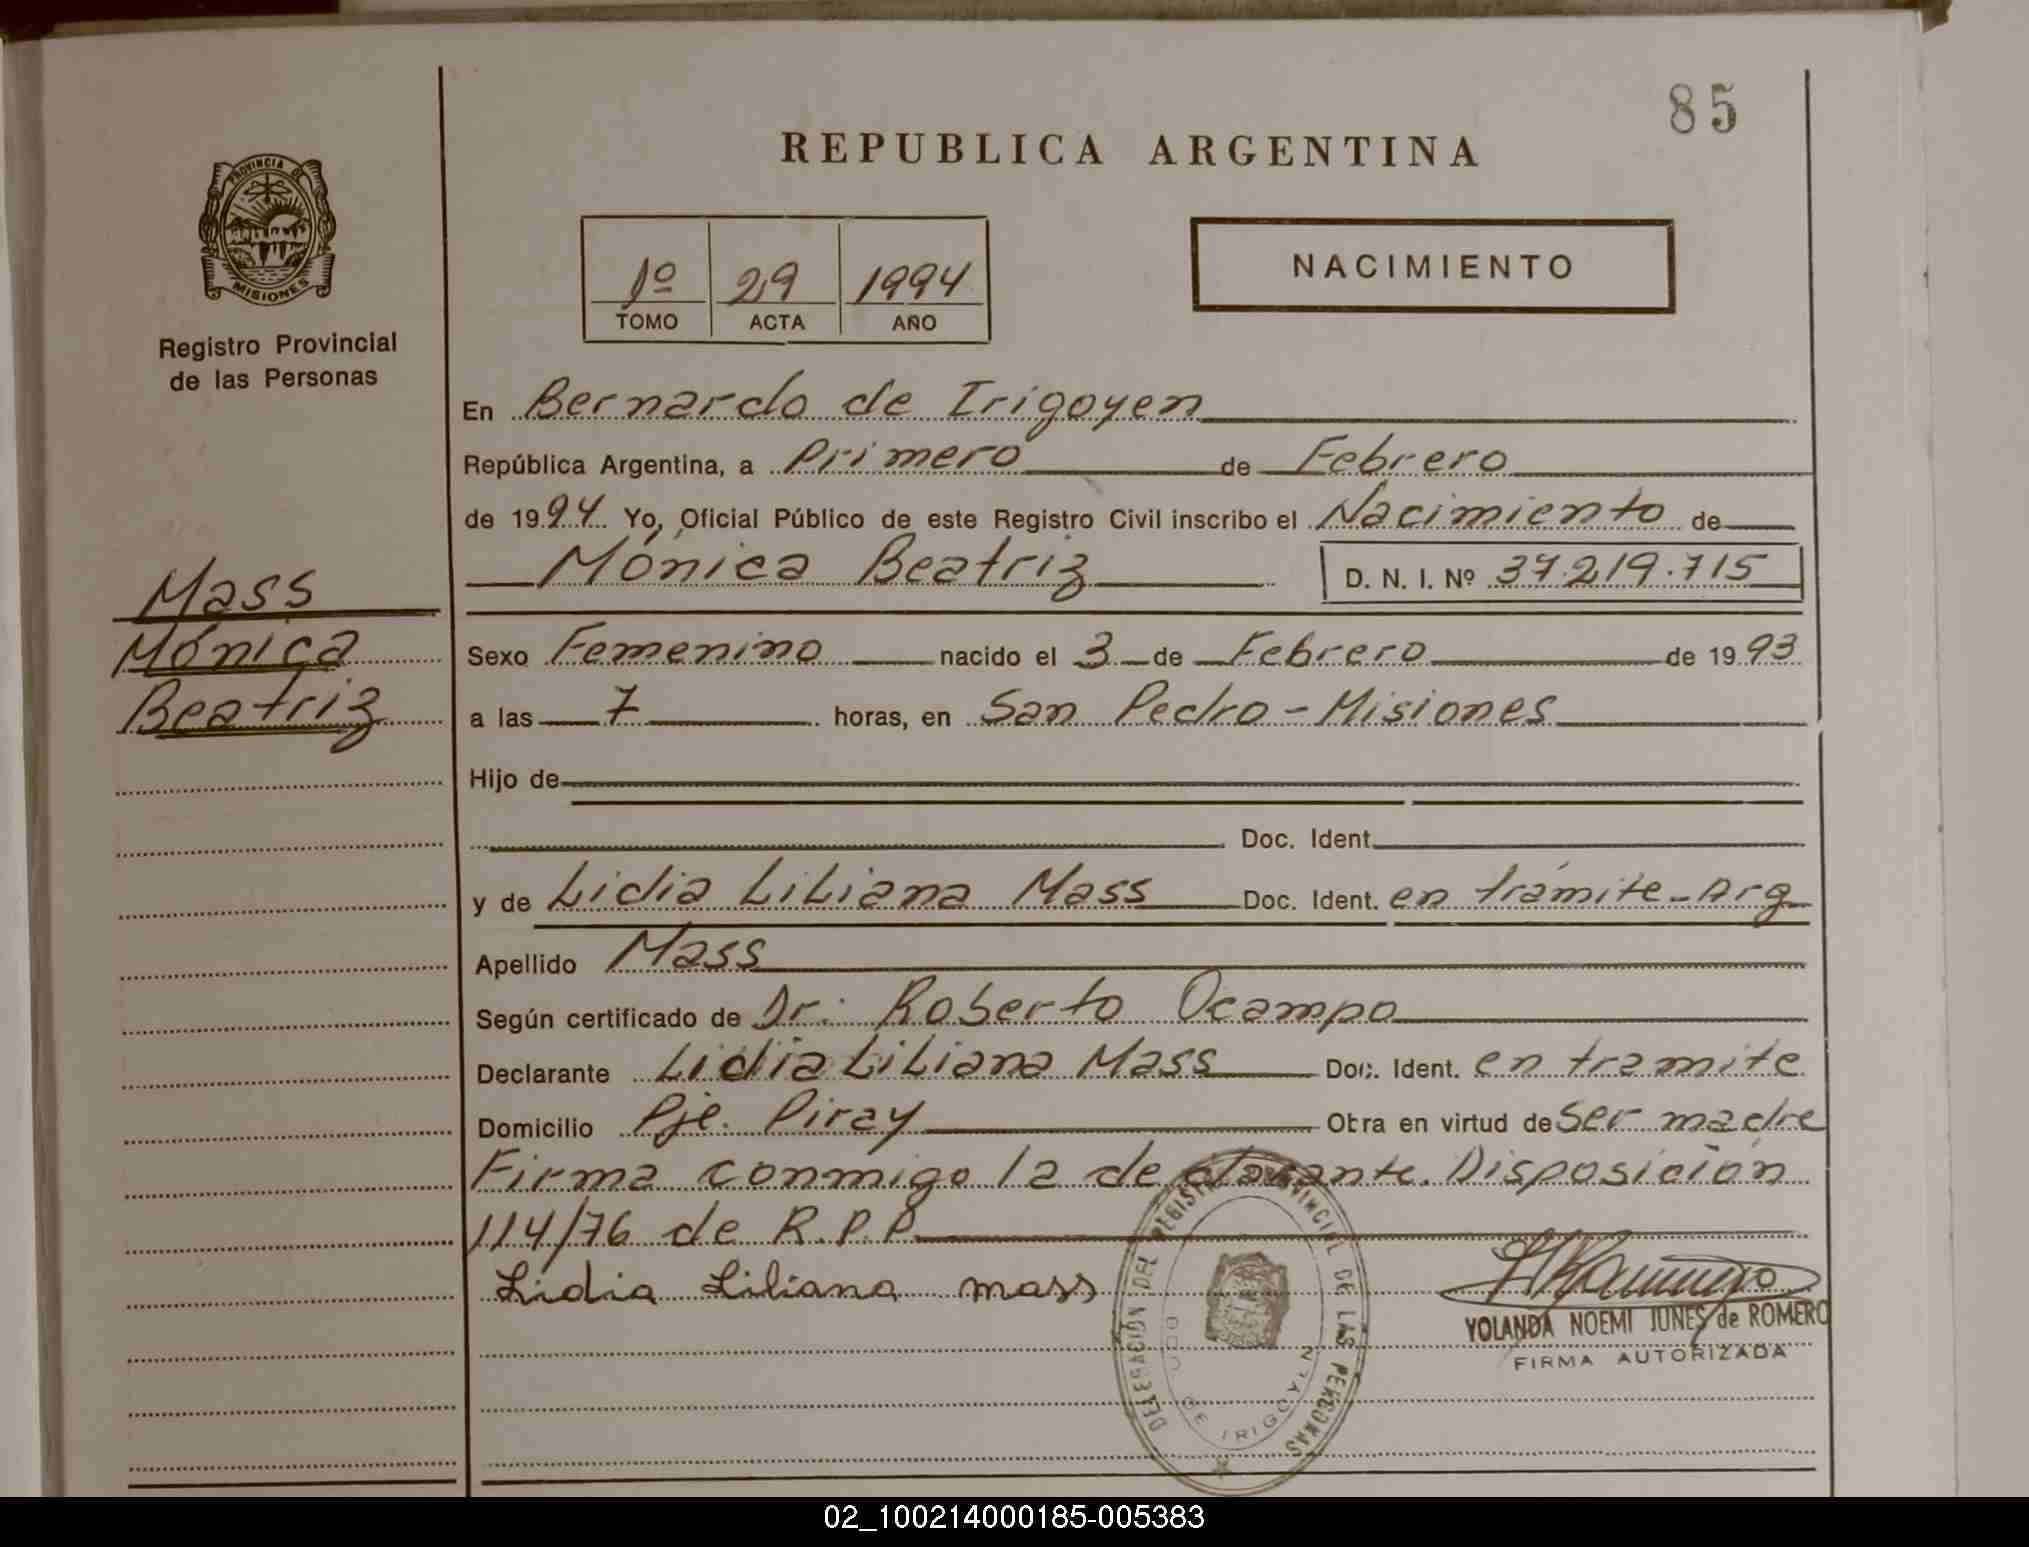 85
REPUBLICA ARGENTINA
PROVINCIA DE
MISIONES
Registro Provincial
de las Personas
1º 29 1994
TOMO ACTA AÑO
NACIMIENTO
En Bernardo de Irigoyen
República Argentina, a Primero de Febrero
de 1994 Yo, Oficial Público de este Registro Civil inscribo el Nacimiento de
Mónica Beatriz D. N. I. Nº 37.219.715
Mass
Mónica
Beatriz
Sexo Femenino nacido el 3 de Febrero de 1993
a las 7 horas, en San Pedro - Misiones
Hijo de
Doc. Ident.
y de Lidia Liliana Mass Doc. Ident. en trámite - Arg
Apellido Mass
Según certificado de Dr: Roberto Ocampo
Declarante Lidia Liliana Mass Doc. Ident. en tramite
Domicilio Pje. Piray Obra en virtud de ser madre
Firma conmigo la declarante. Disposición
114/76 de R.P.P.
Lidia Liliana Mass
DELEGACION DEL REGISTRO PROVINCIAL DE LAS PERSONAS
DE IRIGOYEN
YOLANDA NOEMI JUNES de ROMERO
FIRMA AUTORIZADA
02_100214000185-005383